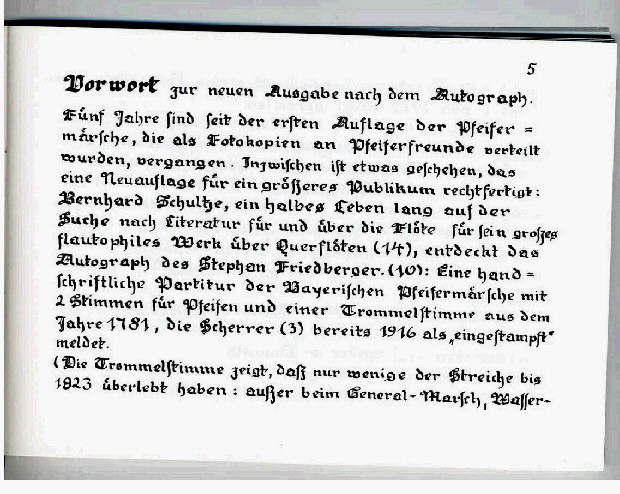 5
Vorwort zur neuen Ausgabe nach dem Autograph.
Fünf Jahre sind seit der ersten Auflage der Pfeifer =
märsche, die als Fotokopien an Pfeiferfreunde verteilt
wurden, vergangen. Inzwischen ist etwas geschehen, das
eine Neuauflage für ein größeres Publikum rechtfertigt:
Bernhard Schultze, ein halbes Leben lang auf der
Suche nach Literatur für und über die Flöte für sein großes
flautophiles Werk über Querflöten (14), entdeckt das
Autograph des Stephan Friedberger. (10): Eine hand =
schriftliche Partitur der Bayerischen Pfeifermärsche mit
2 Stimmen für Pfeifen und einer Trommelstimme aus dem
Jahre 1781, die Scherrer (3) bereits 1916 als „eingestampft"
meldet.
(Die Trommelstimme zeigt, daß nur wenige der Streiche bis
1823 überlebt haben: außer beim General-Marsch, Wasser-